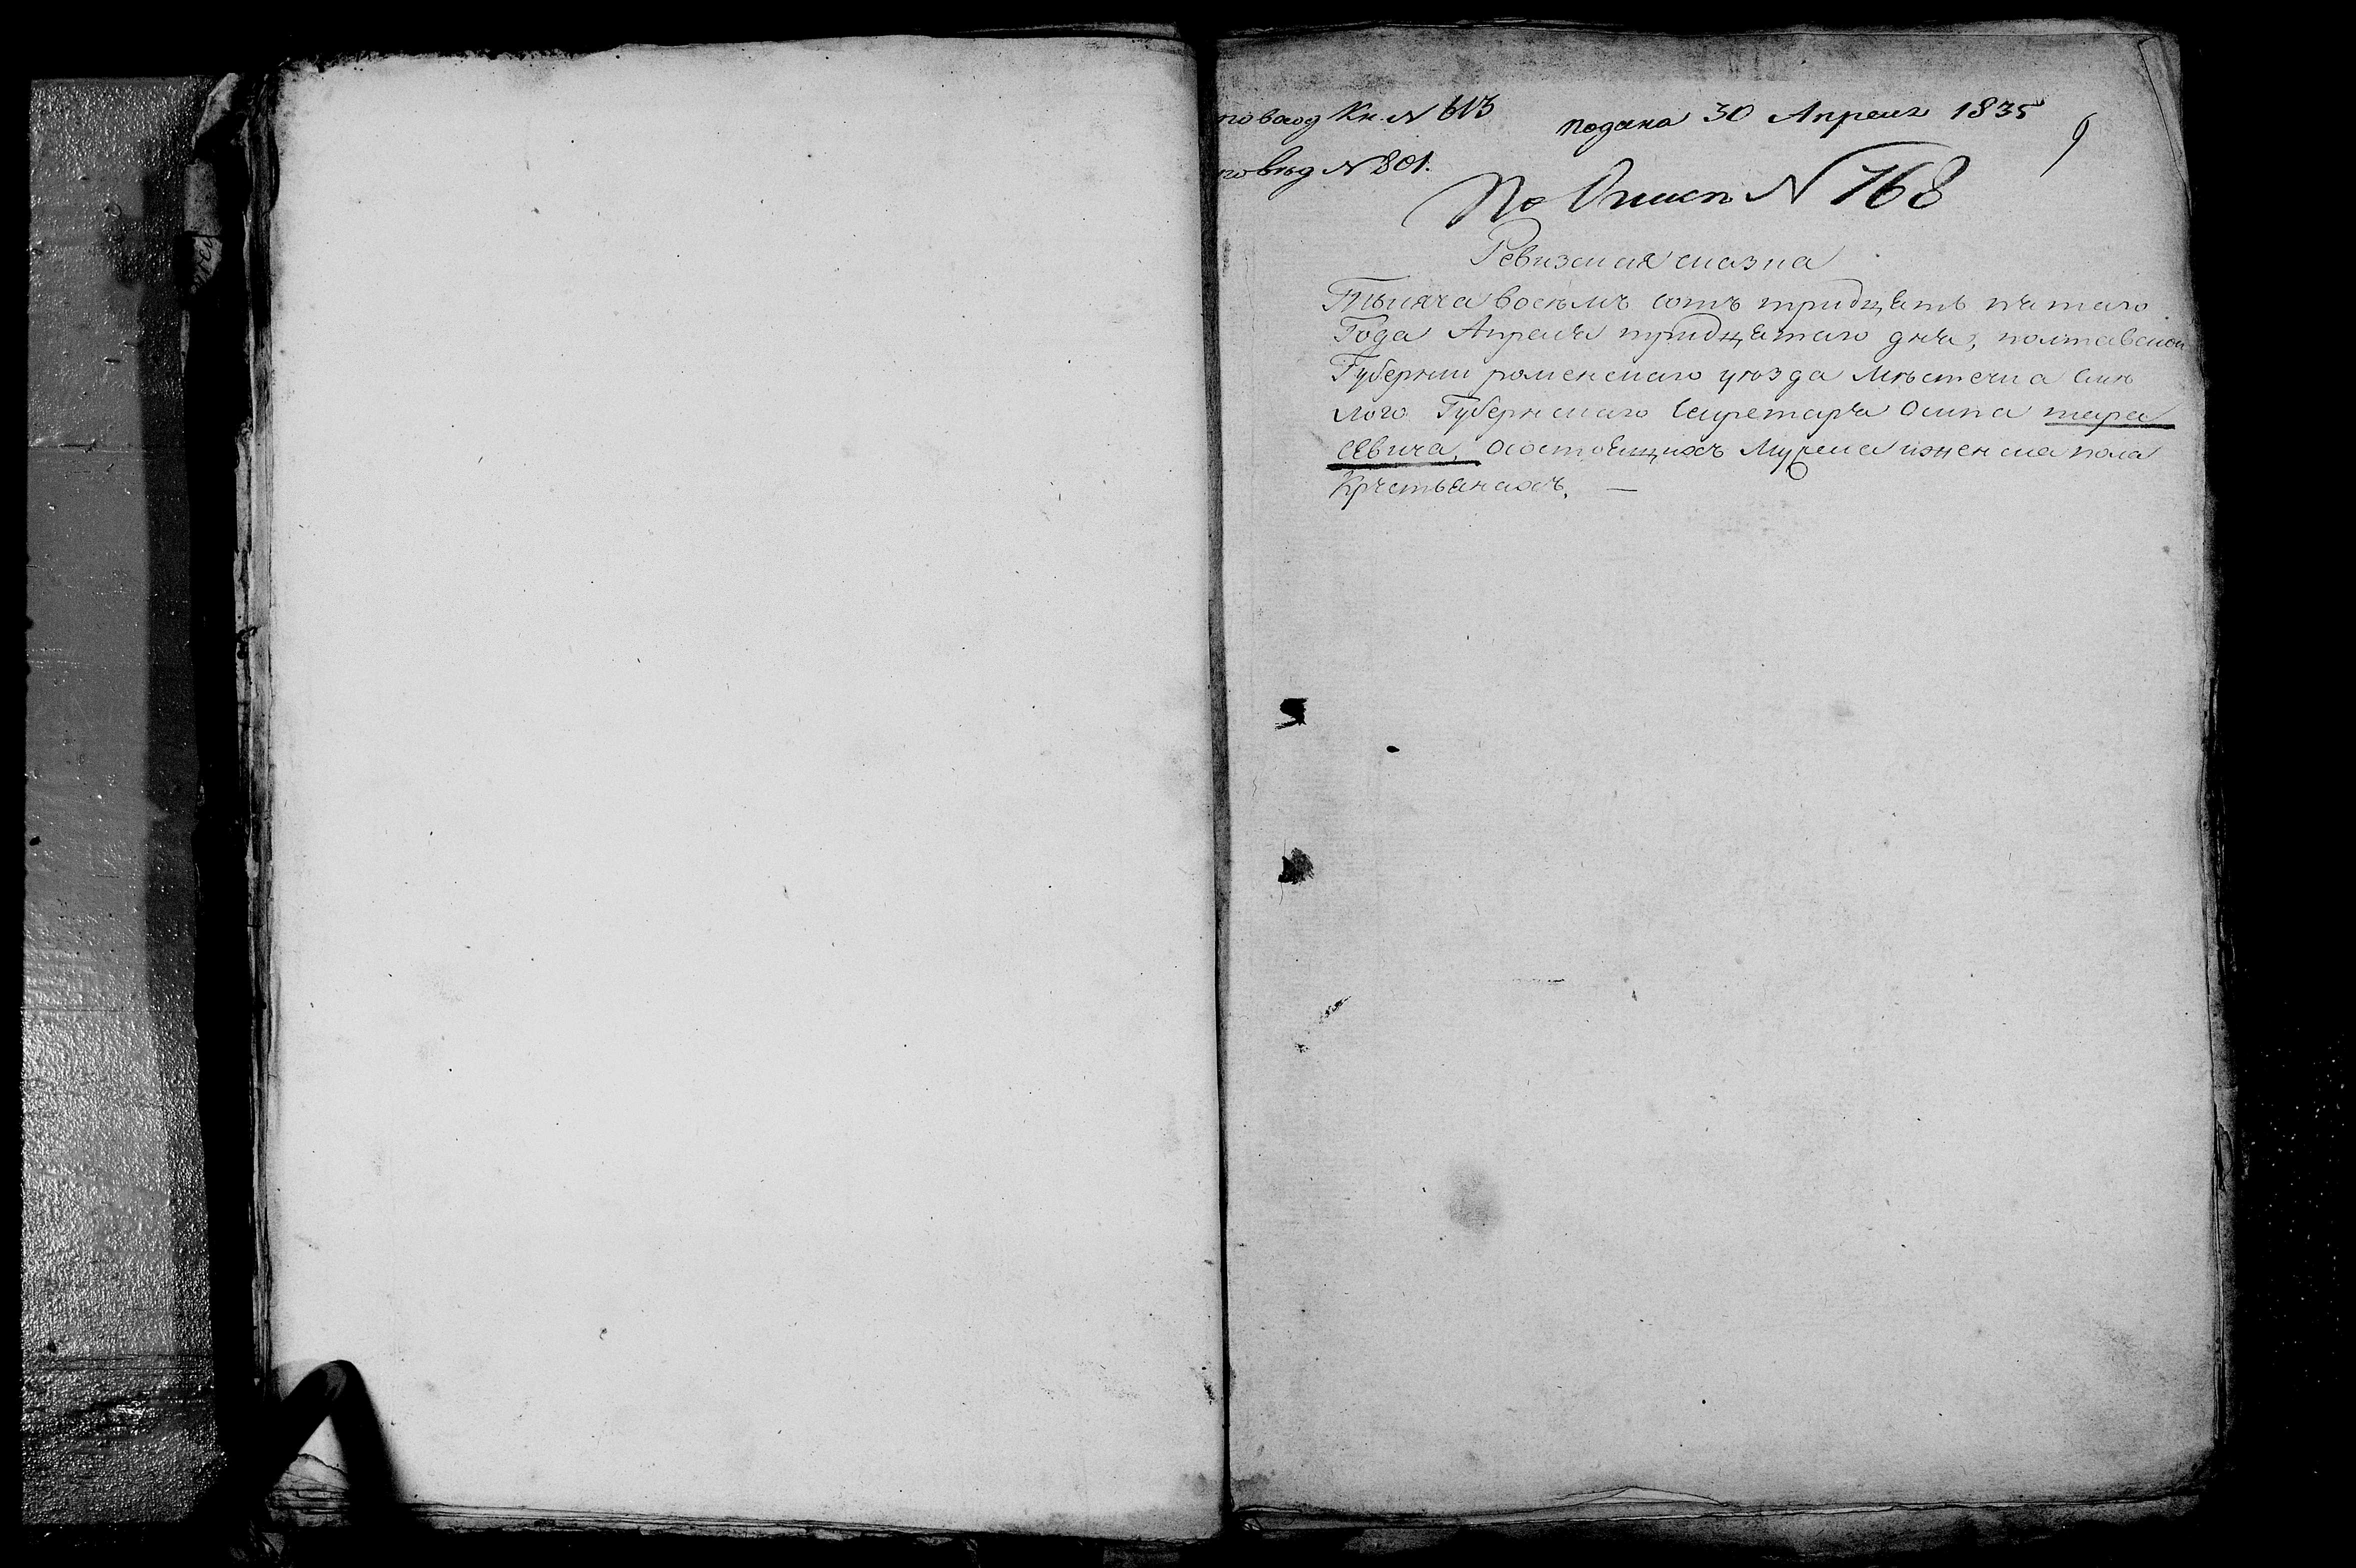 по входд Кн. N 613
подана 30 Апреля 1835
по вѣд N 801.
По Опист N 768
Ревизская сказка
Тысяча восемъ сотъ тридцать пятаго
Года Апреля тридцатаго дня, полтавской
Губернии роменскаго уѣзда Мѣстечка Смѣ
лого Губернскаго Секретаря Осипа тара
севича, осостоящихъ Мужеска иженска пола
Крестьянахъ. —